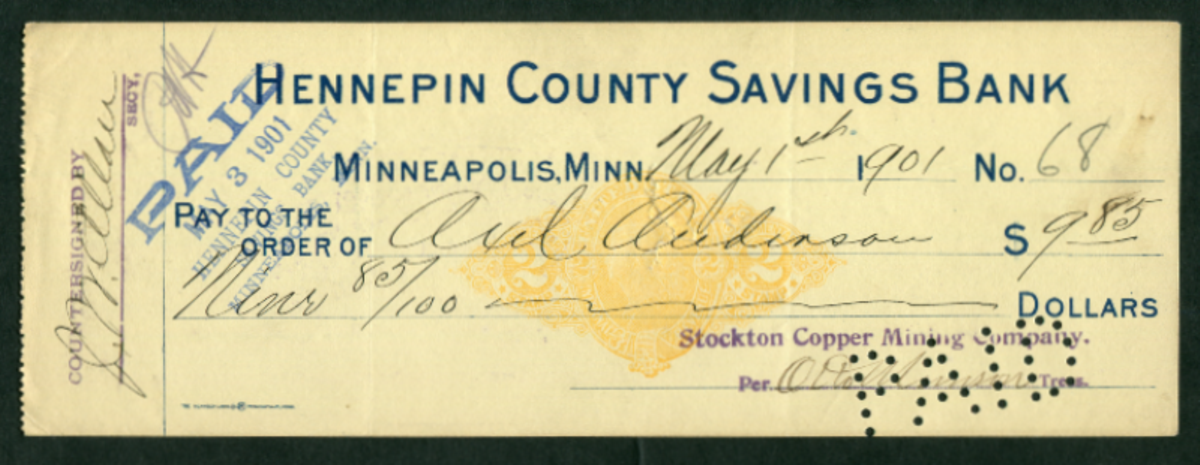 HENNEPIN COUNTY SAVINGS BANK
MINNEAPOLIS, MINN. May 1st 1901 No. 68
PAY TO THE
ORDER OF Axel Anderson $ 9 85
Nine 85/100 DOLLARS
Stockton Copper Mining Company.
Per Treas.
COUNTERSIGNED BY
SECY.
PAID
MAY 3 1901
HENNEPIN COUNTY
SAVINGS BANK
MINNEAPOLIS, MINN.
2 2
PAID